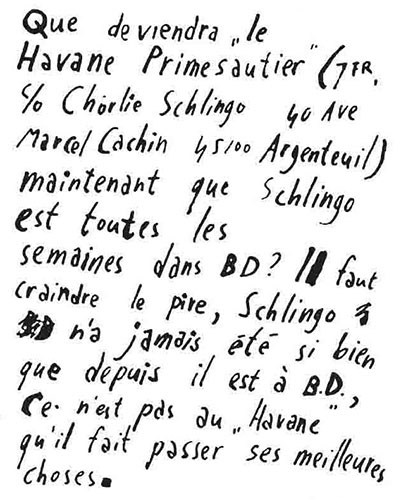 Que deviendra „le
Havane Primesautier" (7FR.
c/o Chorlie Schlingo 40 AVE
Marcel Cachin 45100 Argenteuil)
maintenant que Schlingo
est toutes les
semaines dans BD? Il faut
craindre le pire, Schlingo
n'a jamais été si bien
que depuis il est à B.D.,
Ce n'est pas au „Havane"
qu'il fait passer ses meilleures
choses.